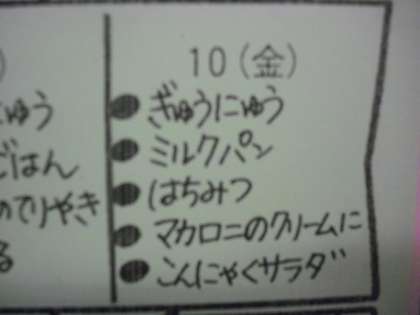 )
10(金)
にゅう
●ぎゅうにゅう
ごはん
●ミルクパン
●はちみつ
のてりやき
●マカロニのクリームに
る
●こんにゃくサラダ